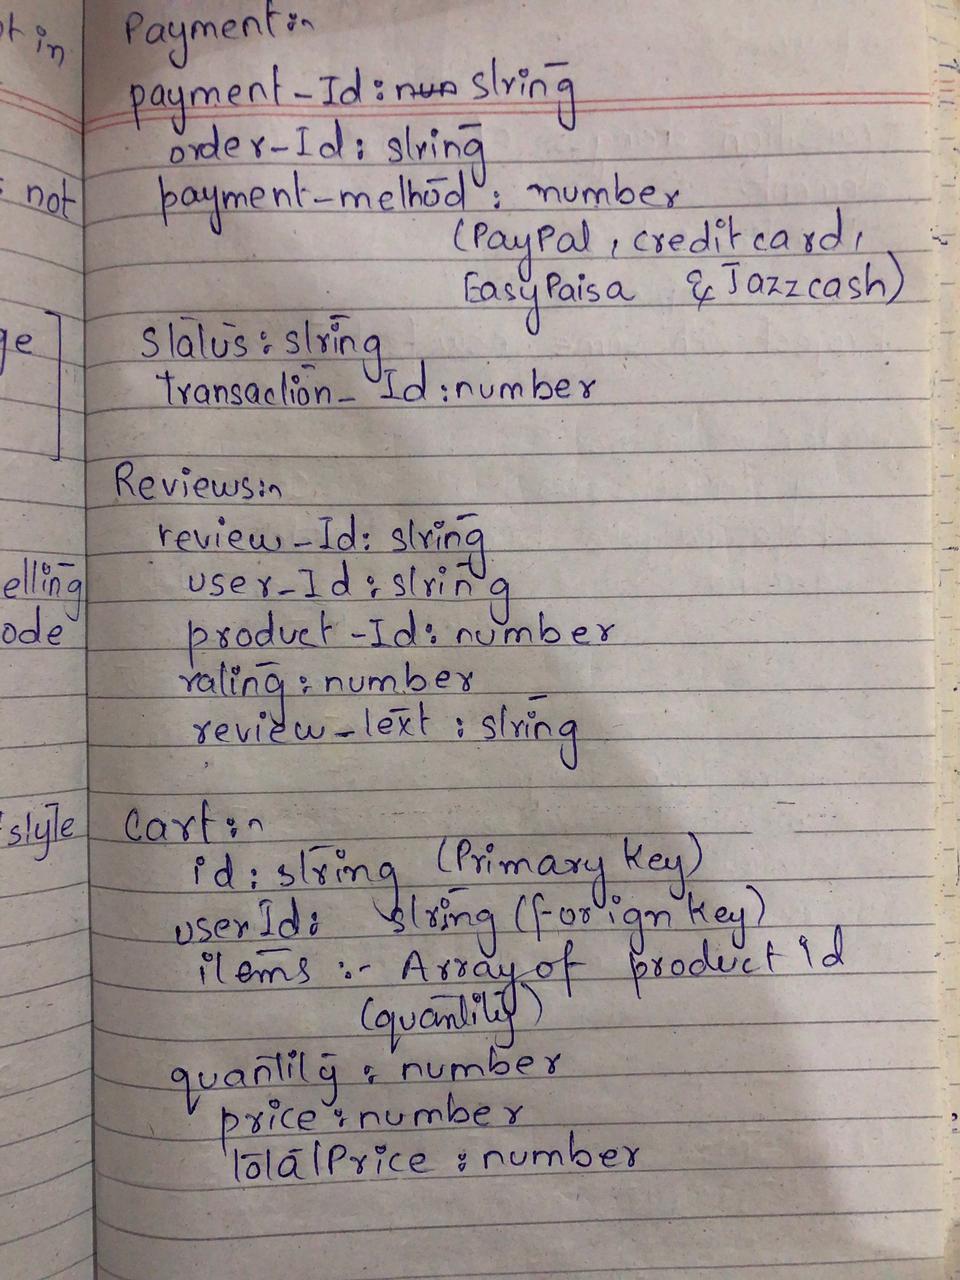 Payment:-
payment-Id: string
order-Id: string
payment-method: number
(PayPal, credit card,
EasyPaisa & Jazzcash)
Status: string
transaction-Id: number
Reviews:-
review-Id: string
user-Id: string
product-Id: number
rating: number
review-text: string
Cart:-
id: string (Primary Key)
userId: string (forign Key)
items:- Array of product id
(quantity)
quantity: number
price: number
totalPrice: number
in
not
ge
elling
ode
style